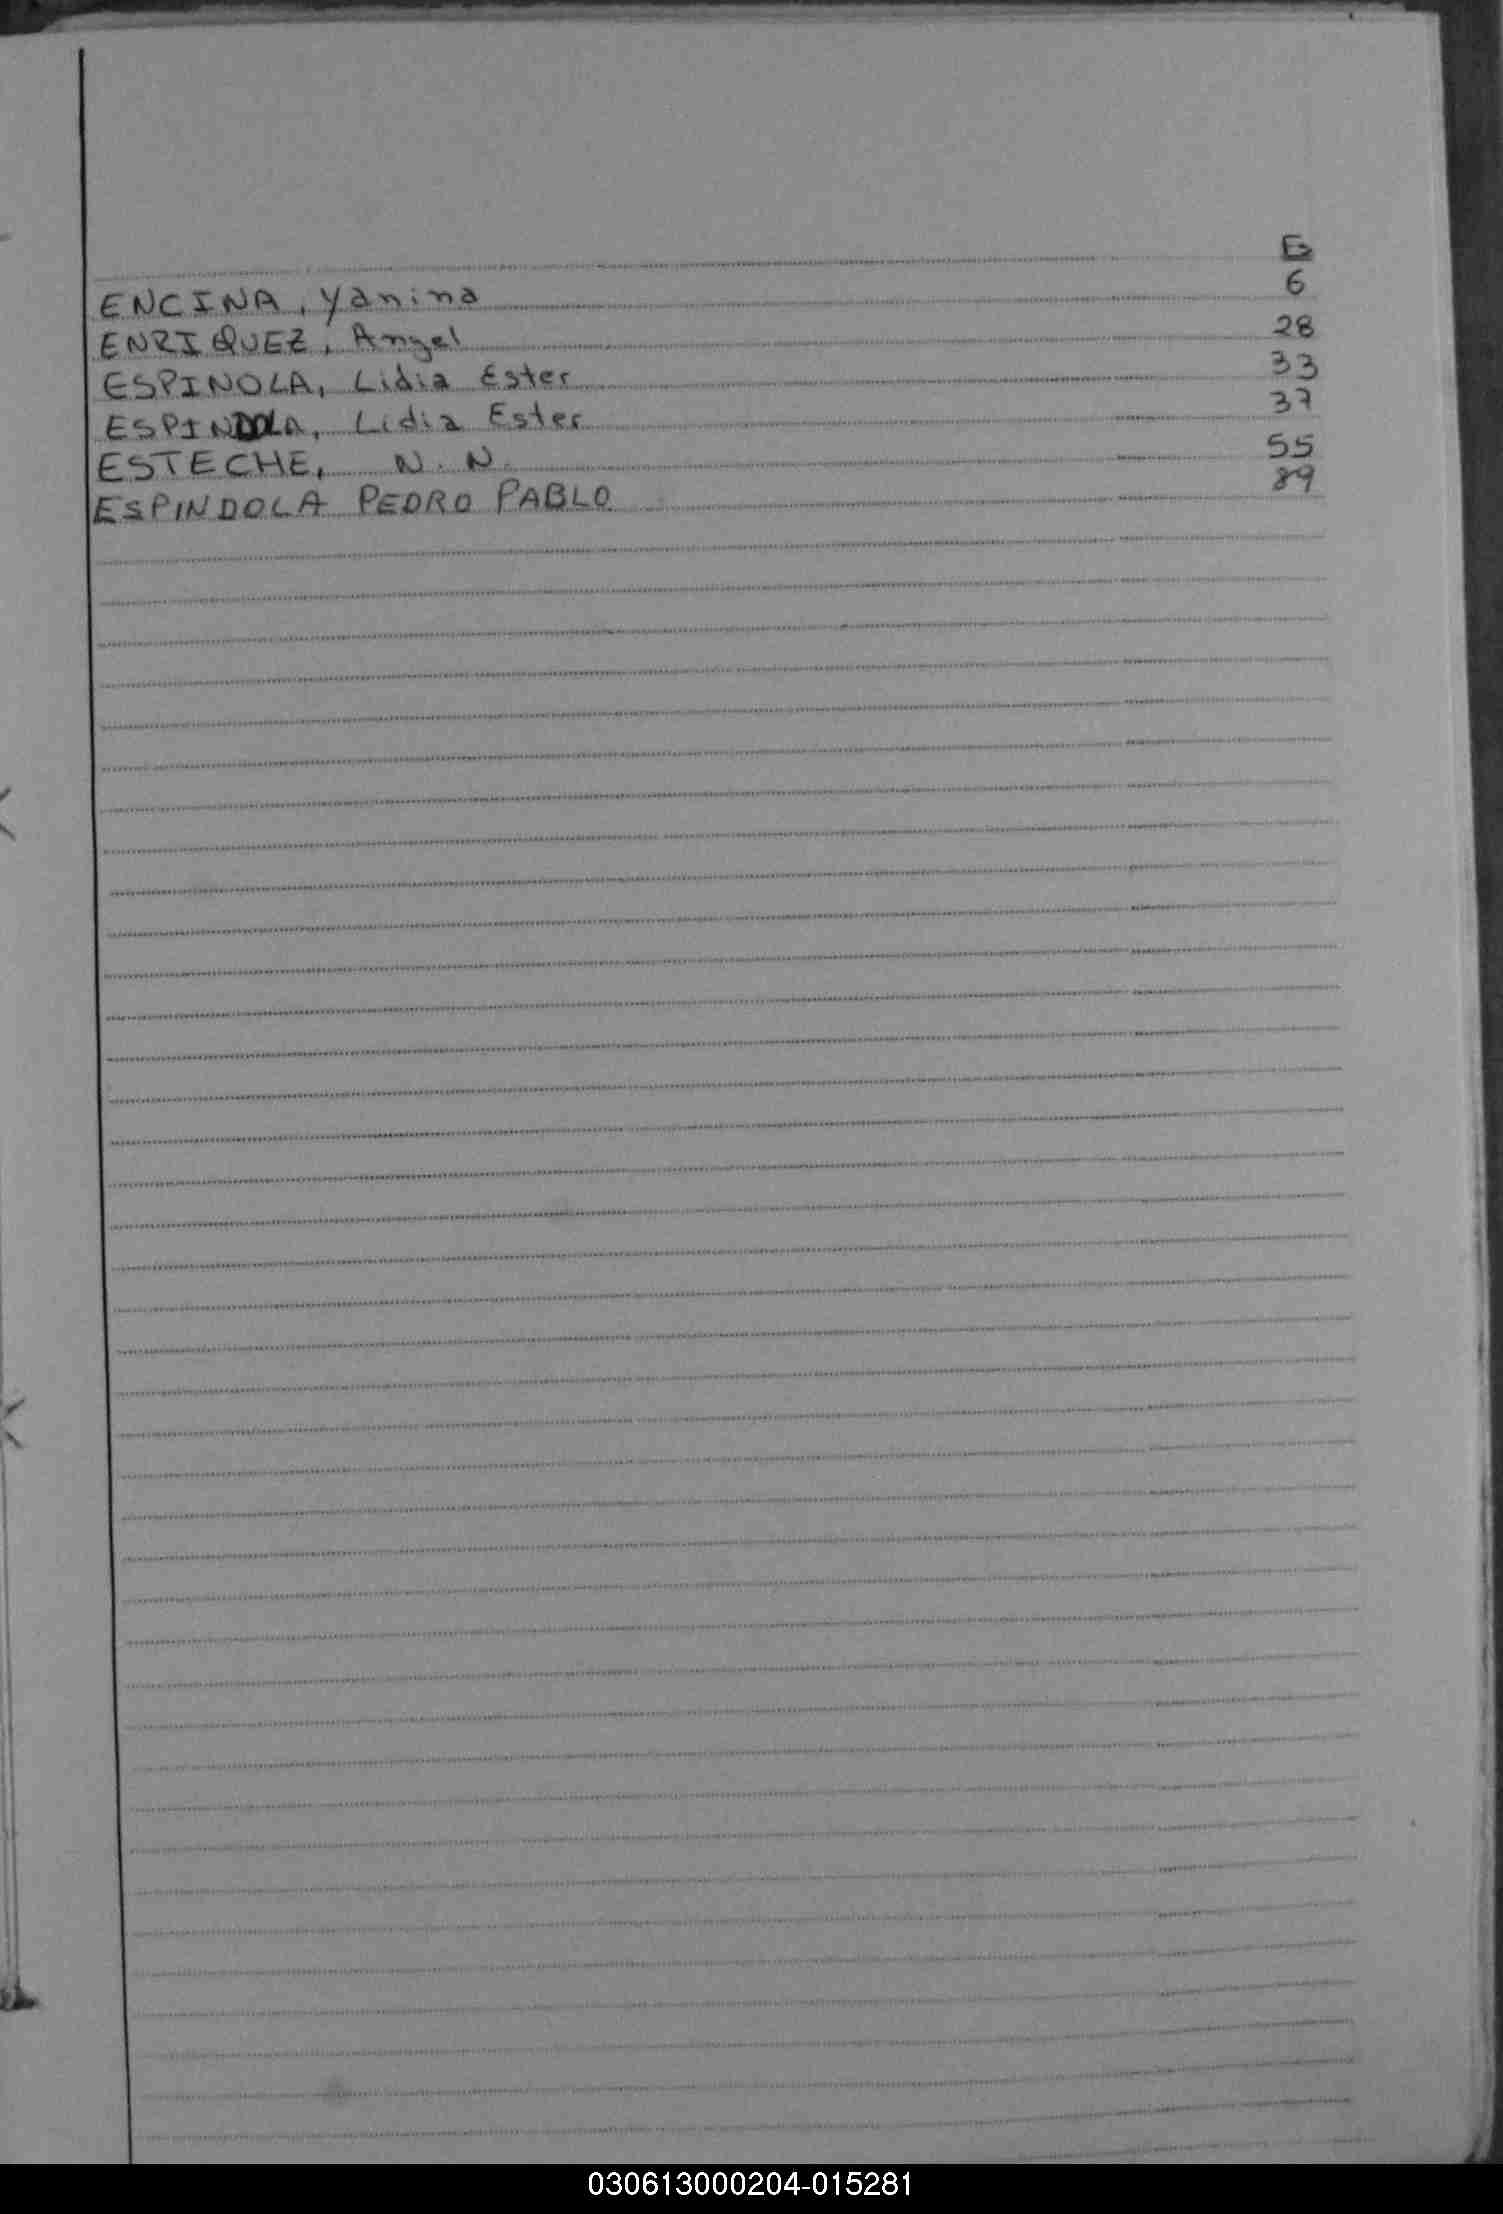 E
ENCINA, Yanina 6
ENRIQUEZ, Angel 28
ESPINOLA, Lidia Ester 33
ESPINDOLA, Lidia Ester 37
ESTECHE, N. N. 55
ESPINDOLA PEDRO PABLO 89
030613000204-015281